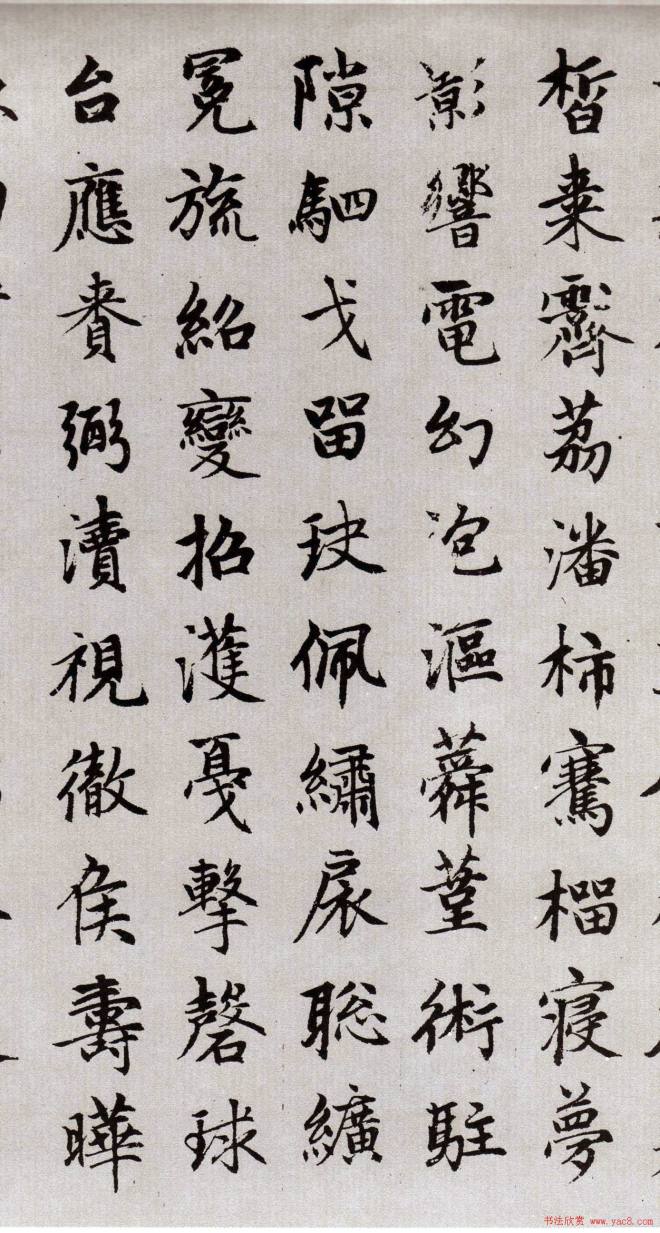 皙棗霽荔潘柿騫榴寢夢
影響電幻泡漚蕣堇術駐
隙駟戈留玦佩繡扆聡纊
冕旒紹變招濩戛擊磬球
台應賚弼瀆視徹侯壽曄
书法欣赏 www.yac8.com